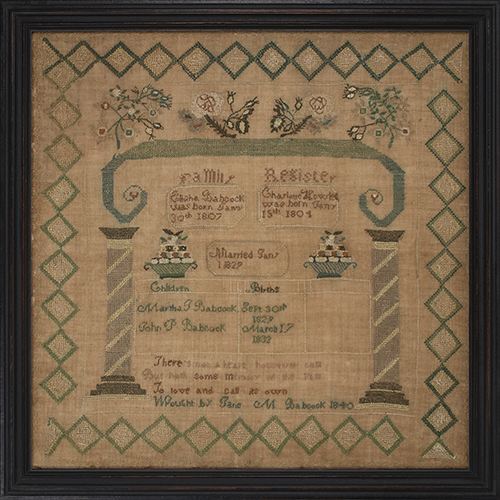 Family Register
Elisha Babcock
was born Janr
30th 1807
Charlotte
was born Jany
15th 1804
Married Janr
1829
Children Births
Martha J Babcock Sept 30th
1829
John P Babcock March 17
1832
There's not a heart however
But hath some
To love and call its own
Wrought by Jane M Babcock 1840